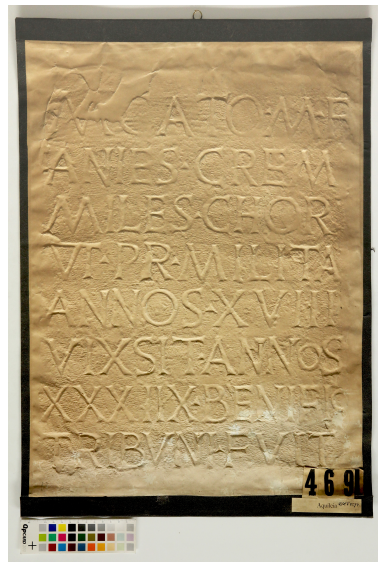 M·CATO·M·F
ANIES·CREM
MILES·CHOR
VI·PR·MILITA
ANNOS·XVIII
VIXSIT·ANNOS
XXXIIX·BENIFIC
TRIBVNI·FVIT
469
Aquileia